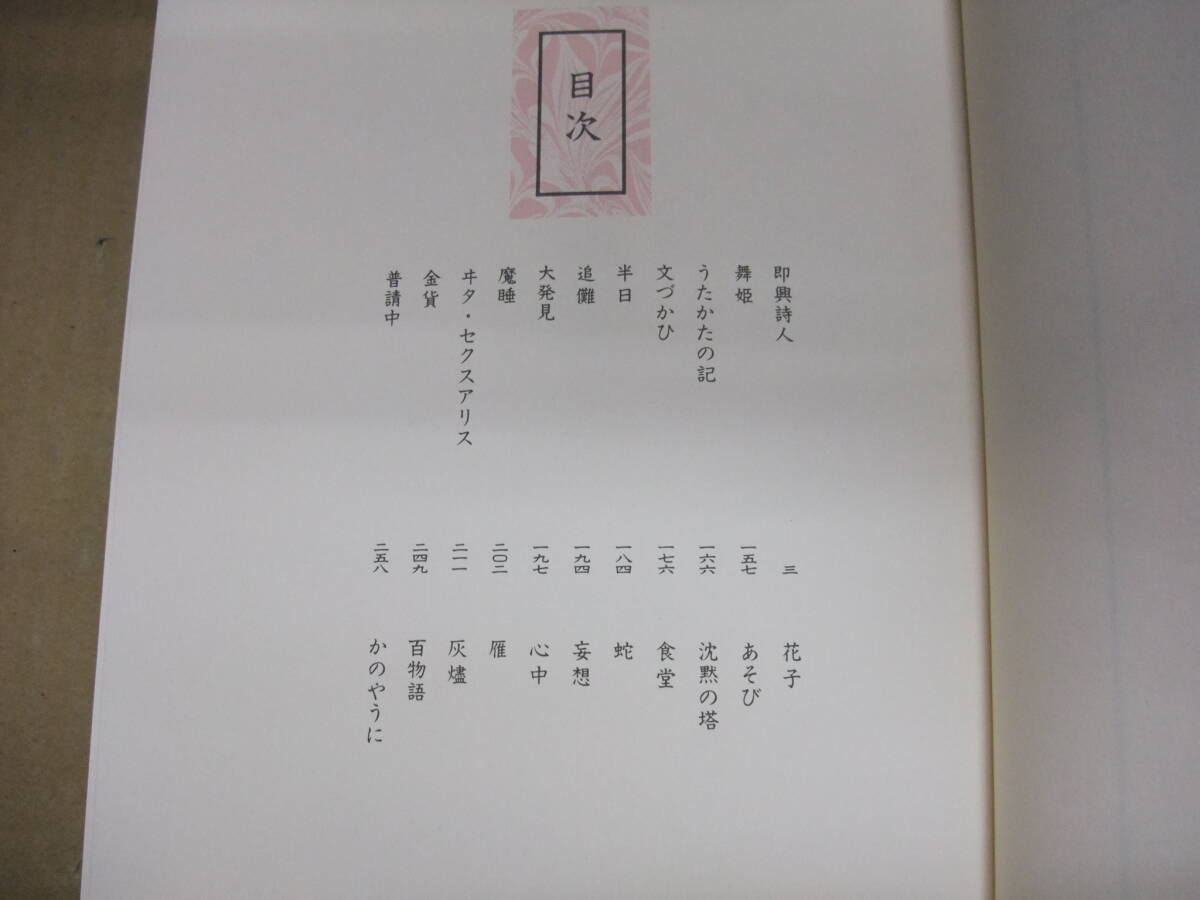 目次
即興詩人 三
舞姫 一五七
うたかたの記 一六六
文づかひ 一七六
半日 一八四
追儺 一九四
大発見 一九七
魔睡 二〇二
ヰタ・セクスアリス 二一一
金貨 二四九
普請中 二五八
花子
あそび
沈黙の塔
食堂
蛇
妄想
心中
雁
灰燼
百物語
かのやうに